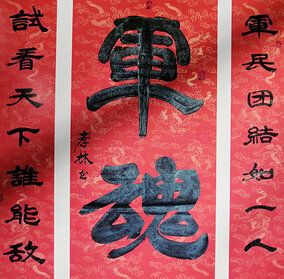 軍民团結如一人
軍魂
孝林书
試看天下誰能敵